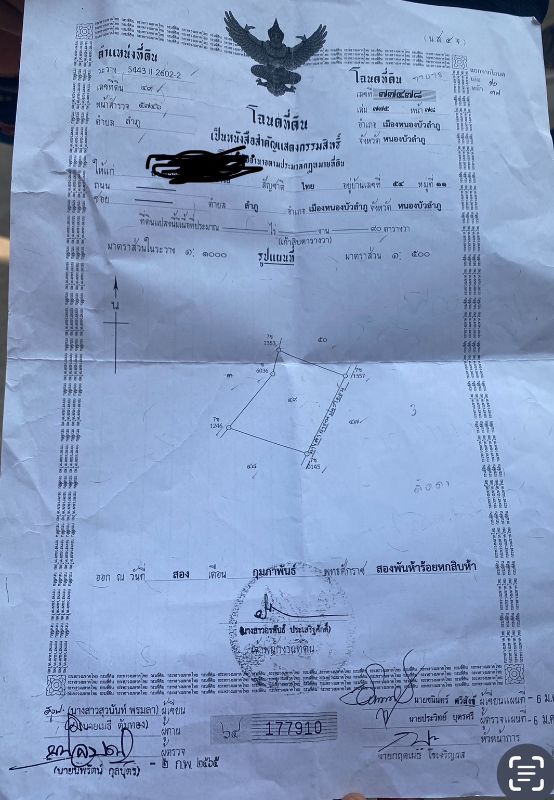 (น.ส.๔ จ)
ตำแหน่งที่ดิน
ระวาง 5443 II 2602-2
เลขที่ดิน ๔๙
หน้าสำรวจ
ตำบล ลำภู
โฉนดที่ดิน
เลขที่ ๗๗๔๗๘
เล่ม ๗๗๕ หน้า ๗๘
อำเภอ เมืองหนองบัวลำภู
จังหวัด หนองบัวลำภู
โฉนดที่ดิน
เป็นหนังสือสำคัญแสดงกรรมสิทธิ์
ตามประมวลกฎหมายที่ดิน
ให้แก่ สัญชาติ ไทย อยู่บ้านเลขที่ ๕๔ หมู่ที่ ๑๑
ถนน
ซอย ตำบล ลำภู อำเภอ เมืองหนองบัวลำภู จังหวัด หนองบัวลำภู
ที่ดินแปลงนี้มีเนื้อที่ประมาณ ไร่ งาน ๙๐ ตารางวา
(เก้าสิบตารางวา)
มาตราส่วนในระวาง ๑: ๑๐๐๐ รูปแผนที่ มาตราส่วน ๑: ๕๐๐
น
๕๐
7ข
1353
6036
7ข
1357
๓
๔๙
7ข
1246
๔๗
7ข
6145
๔๘
ออก ณ วันที่ สอง เดือน กุมภาพันธ์ พุทธศักราช สองพันห้าร้อยหกสิบห้า
(นางสาวอรพันธ์ ประเสริฐศักดิ์)
เจ้าพนักงานที่ดิน
(นางสาวสุวนันท์ พรมลา) ผู้เขียน
ผู้ทาน
ผู้ตรวจ
๒ ก.พ. ๒๕๖๕
๖๔ 177910
ผู้เขียนแผนที่
นายประวิทย์ บุตรศรี ผู้ตรวจแผนที่
หัวหน้าการ